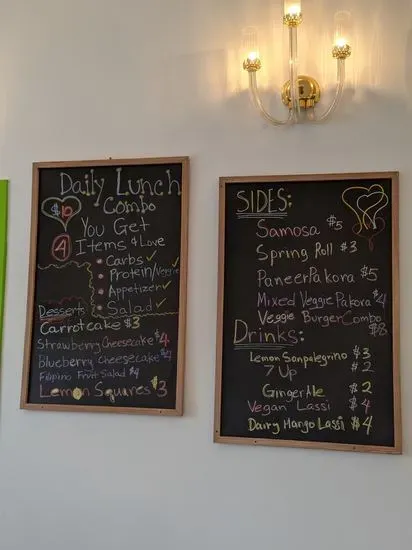 Daily Lunch
Combo
$10
You Get
4 Items & Love
• Carbs ✓
• Protein/Veggie ✓
• Appetizer ✓
• Salad ✓
Desserts
Carrotcake $3
Strawberry Cheesecake $4
Blueberry Cheesecake $4
Filipino Fruit Salad $4
Lemon Squares $3
SIDES:
Samosa $5
Spring Roll $3
Paneer Pakora $5
Mixed Veggie Pakora $4
Veggie Burger Combo $8
Drinks:
Lemon Sanpalegrino $3
7 Up $2
Ginger Ale $2
Vegan Lassi $4
Dairy Mango Lassi $4